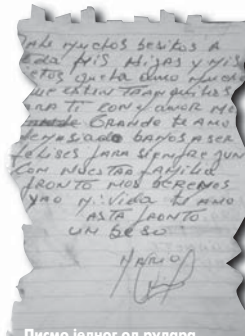 Dale muchos besitos A
toda MIS HIJAS Y MIS
etos que la Amo Much
ue estén TRANquilitos
ARA ti CON el AMOR MA
GRANDE te AMO
DEMASIADO BAMOS A SER
felises PARA SIEMPRE jun
CON NUESTRA fAMiliA
PRONTO NOS BEREMOS
yAO Mi Vida te AMO
ASTA PRONTO
UN BESO
MARIO
Писмо једног од рудара